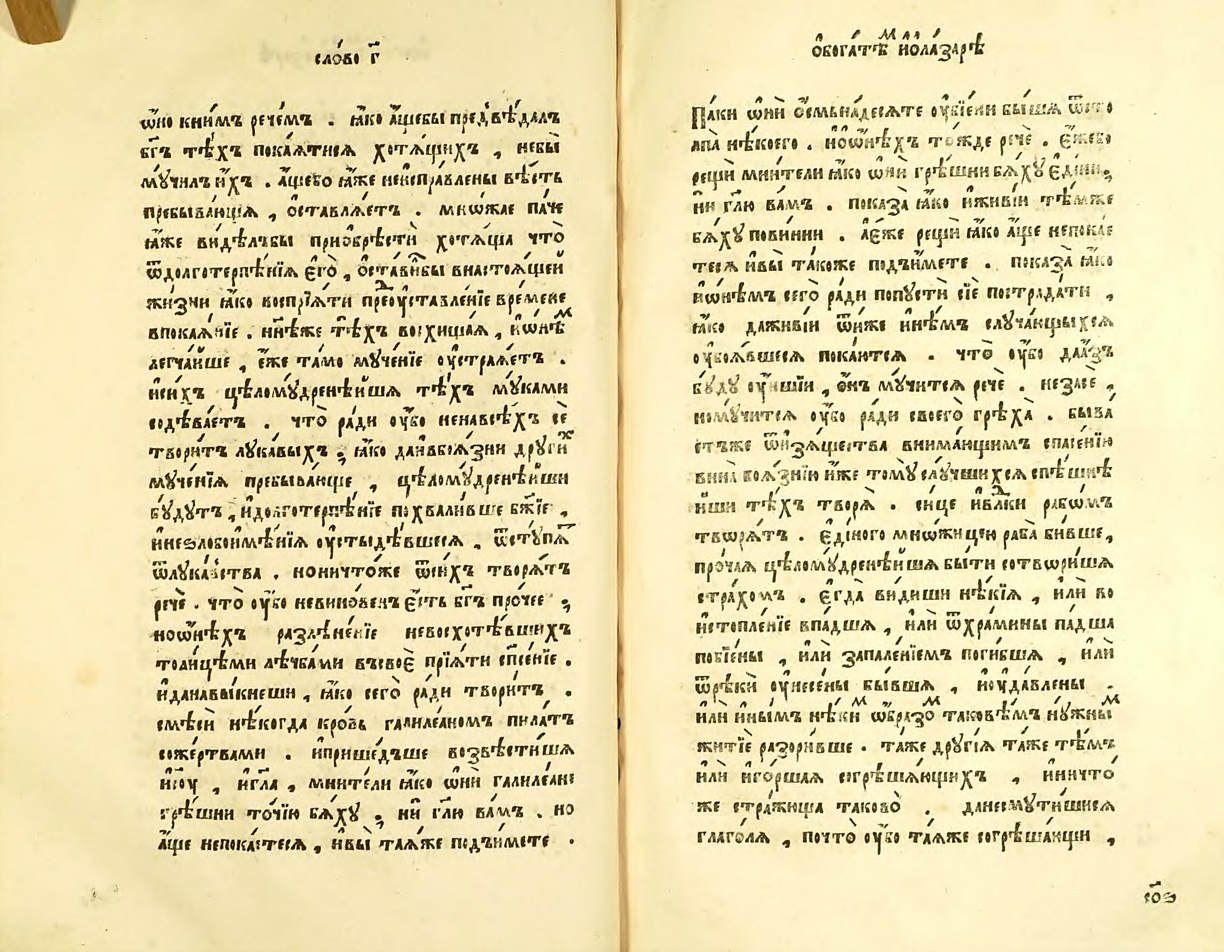 сло́во г҃
ѡ҆но книмъ рече́мъ . ꙗ҆́ко а҆́щебы предвѣ́далъ
бг҃ъ тѣ́хъ покаѧ́тисѧ хотѧ́щихъ , небы̀
мꙋ́чилъ и҆́хъ . а҆́щебо ꙗ҆́же неиспра́влены вѣ́сть
пребыва́ющїѧ , ѻ҆ставлѧ́етъ . мно́жае па́че
ꙗ҆́же ви́дѣлъбы приѡбрѣстѝ хотѧ́ща что̀
ѿдолготерпѣ́нїѧ є҆гѡ̀ , ѻ҆ста́вилбы внастоѧ́щей
жи́зни ꙗ҆́ко воспрїѧ́ти преꙋставле́нїе вре́мене
впокаѧ́нїе . нн҃ѣже тѣ́хъ восхища́ѧ , и҆ѡ҆нѣм
легча́йше , є҆́же та́мо мꙋче́нїе ᲂу҆страѧ́етъ .
и҆си́хъ цѣломꙋ́дренѣйшѧ тѣ́хъ мꙋ́ками
содѣва́етъ . что̀ ра́ди ᲂу҆́бо ненавсѣ́хъ се̑
твори́тъ лꙋка́выхъ ; ꙗ҆́ко даивбоѧ́зни дрꙋги́х
мꙋче́нїѧ пребыва́юще , цѣломꙋ́дренѣйши
бꙋ́дꙋтъ , и҆долготерпѣ́нїе похвали́вше бж҃їе ,
и҆незлобоимѣ́нїѧ ᲂу҆стыдѣ́вшесѧ , ѿстꙋ́пѧт
ѿлꙋка́вства . нониčто́же ѿси́хъ творѧ́тъ
рече̑ . что̀ ᲂу҆́бо невино́венъ є҆́сть бг҃ъ про́чее ;
ноѡ҆нѣ́хъ разлѣне́нїе невосхотѣ́вшихъ
толи́цѣми лѣ́чбами въсвоѐ прїѧ́ти сп҃се́нїе .
и҆данавы́кнеши , ꙗ҆́ко сегѡ̀ ра́ди твори́тъ .
смѣсѝ нѣ́когда кро́вь галиле́аномъ пила́тъ
соже́ртвами . и҆прише́дъше возвѣсти́шѧ
і҆и҃сꙋ , и҆гл҃а , мни́тели ꙗ҆́ко ѡ҆нѝ галиле́ане
грѣ́шни то́чїю бѧ́хꙋ ; нѝ гл҃ю ва́мъ . но
а҆́ще непока́етесѧ , и҆вы̀ та́ѧже подъи́мете .
ѻ҆бога́тѣмъ и҆ѡла́зарѣ
Па́ки ѡ҆нѝ ѻ҆смьна́десѧте ᲂу҆бїе́ни бы́шѧ ѿсто
лпа̀ нѣ́коего . и҆ѡ҆нѣ́хъ то́жде рече̑ . є҆́жебо
рещѝ мни́тели ꙗ҆́ко ѡ҆нѝ грѣ́шни бѧ́хꙋ є҆ди́ни ,
нѝ гл҃ю ва́мъ . показа̀ ꙗ҆́ко и҆жи́вїи тѣ́мже
бѧ́хꙋ пови́нни . а҆є҆́же рещѝ ꙗ҆́ко а҆́ще непока́е
тесѧ и҆вы̀ та́коже подъи́мете . показа̀ ꙗ҆́ко
и҆ѡ҆нѣ́мъ сегѡ̀ ра́ди попꙋстѝ сїѐ пострада́ти ,
ꙗ҆́ко дажи́вїи ѿи҆́же и҆нѣ́мъ слꙋча́ющыхсѧ
ᲂу҆боѧ́вшесѧ пока́ютсѧ . что̀ ᲂу҆́бо даа́зъ
бꙋ́дꙋ ᲂу҆́ншїи , ѻ҆́нъ мꙋ́читсѧ рече̑ . неза̀се ,
номꙋ́читсѧ ᲂу҆́бо ра́ди своегѡ̀ грѣха̀ . быва́
етъже ѿи҆зѧ́щества внима́ющимъ спасе́нїю
вина̀ боѧ́знїю и҆́же томꙋ̀ слꙋ́чшихсѧ спѣ́шнѣ
йши тѣ́хъ творѧ̀ . си́це и҆влⷣки рабѡ́мъ
творѧ́тъ . є҆ди́ного мно́жицею раба̀ би́вше ,
про́чаѧ цѣломꙋ́дренѣйшѧ бы́ти сотвори́шѧ
стра́хомъ . є҆гда̀ ви́диши нѣ́кїѧ , и҆лѝ во
истопле́нїе впа́дшѧ , и҆лѝ ѿхра́мины па́дша
побїе́ны , и҆лѝ запале́нїемъ поги́бшѧ , и҆лѝ
ѿрѣкѝ ᲂу҆несе́ны бы́вшѧ , и҆ᲂу҆да́влены .
и҆лѝ и҆ны́мъ нѣ́ким ѡ҆́бразом таковѣ́мъ нꙋ́жным
житїѐ разори́вше . та́же дрꙋгі́ѧ та́же тѣ́мъ
и҆лѝ и҆го́ршаѧ согрѣша́ющихъ , и҆ничто́
же стра́жꙋща таково̀ . данесмꙋти́шисѧ
глаго́лѧ , почто̀ ᲂу҆́бо та́ѧже согрѣша́ющи ,